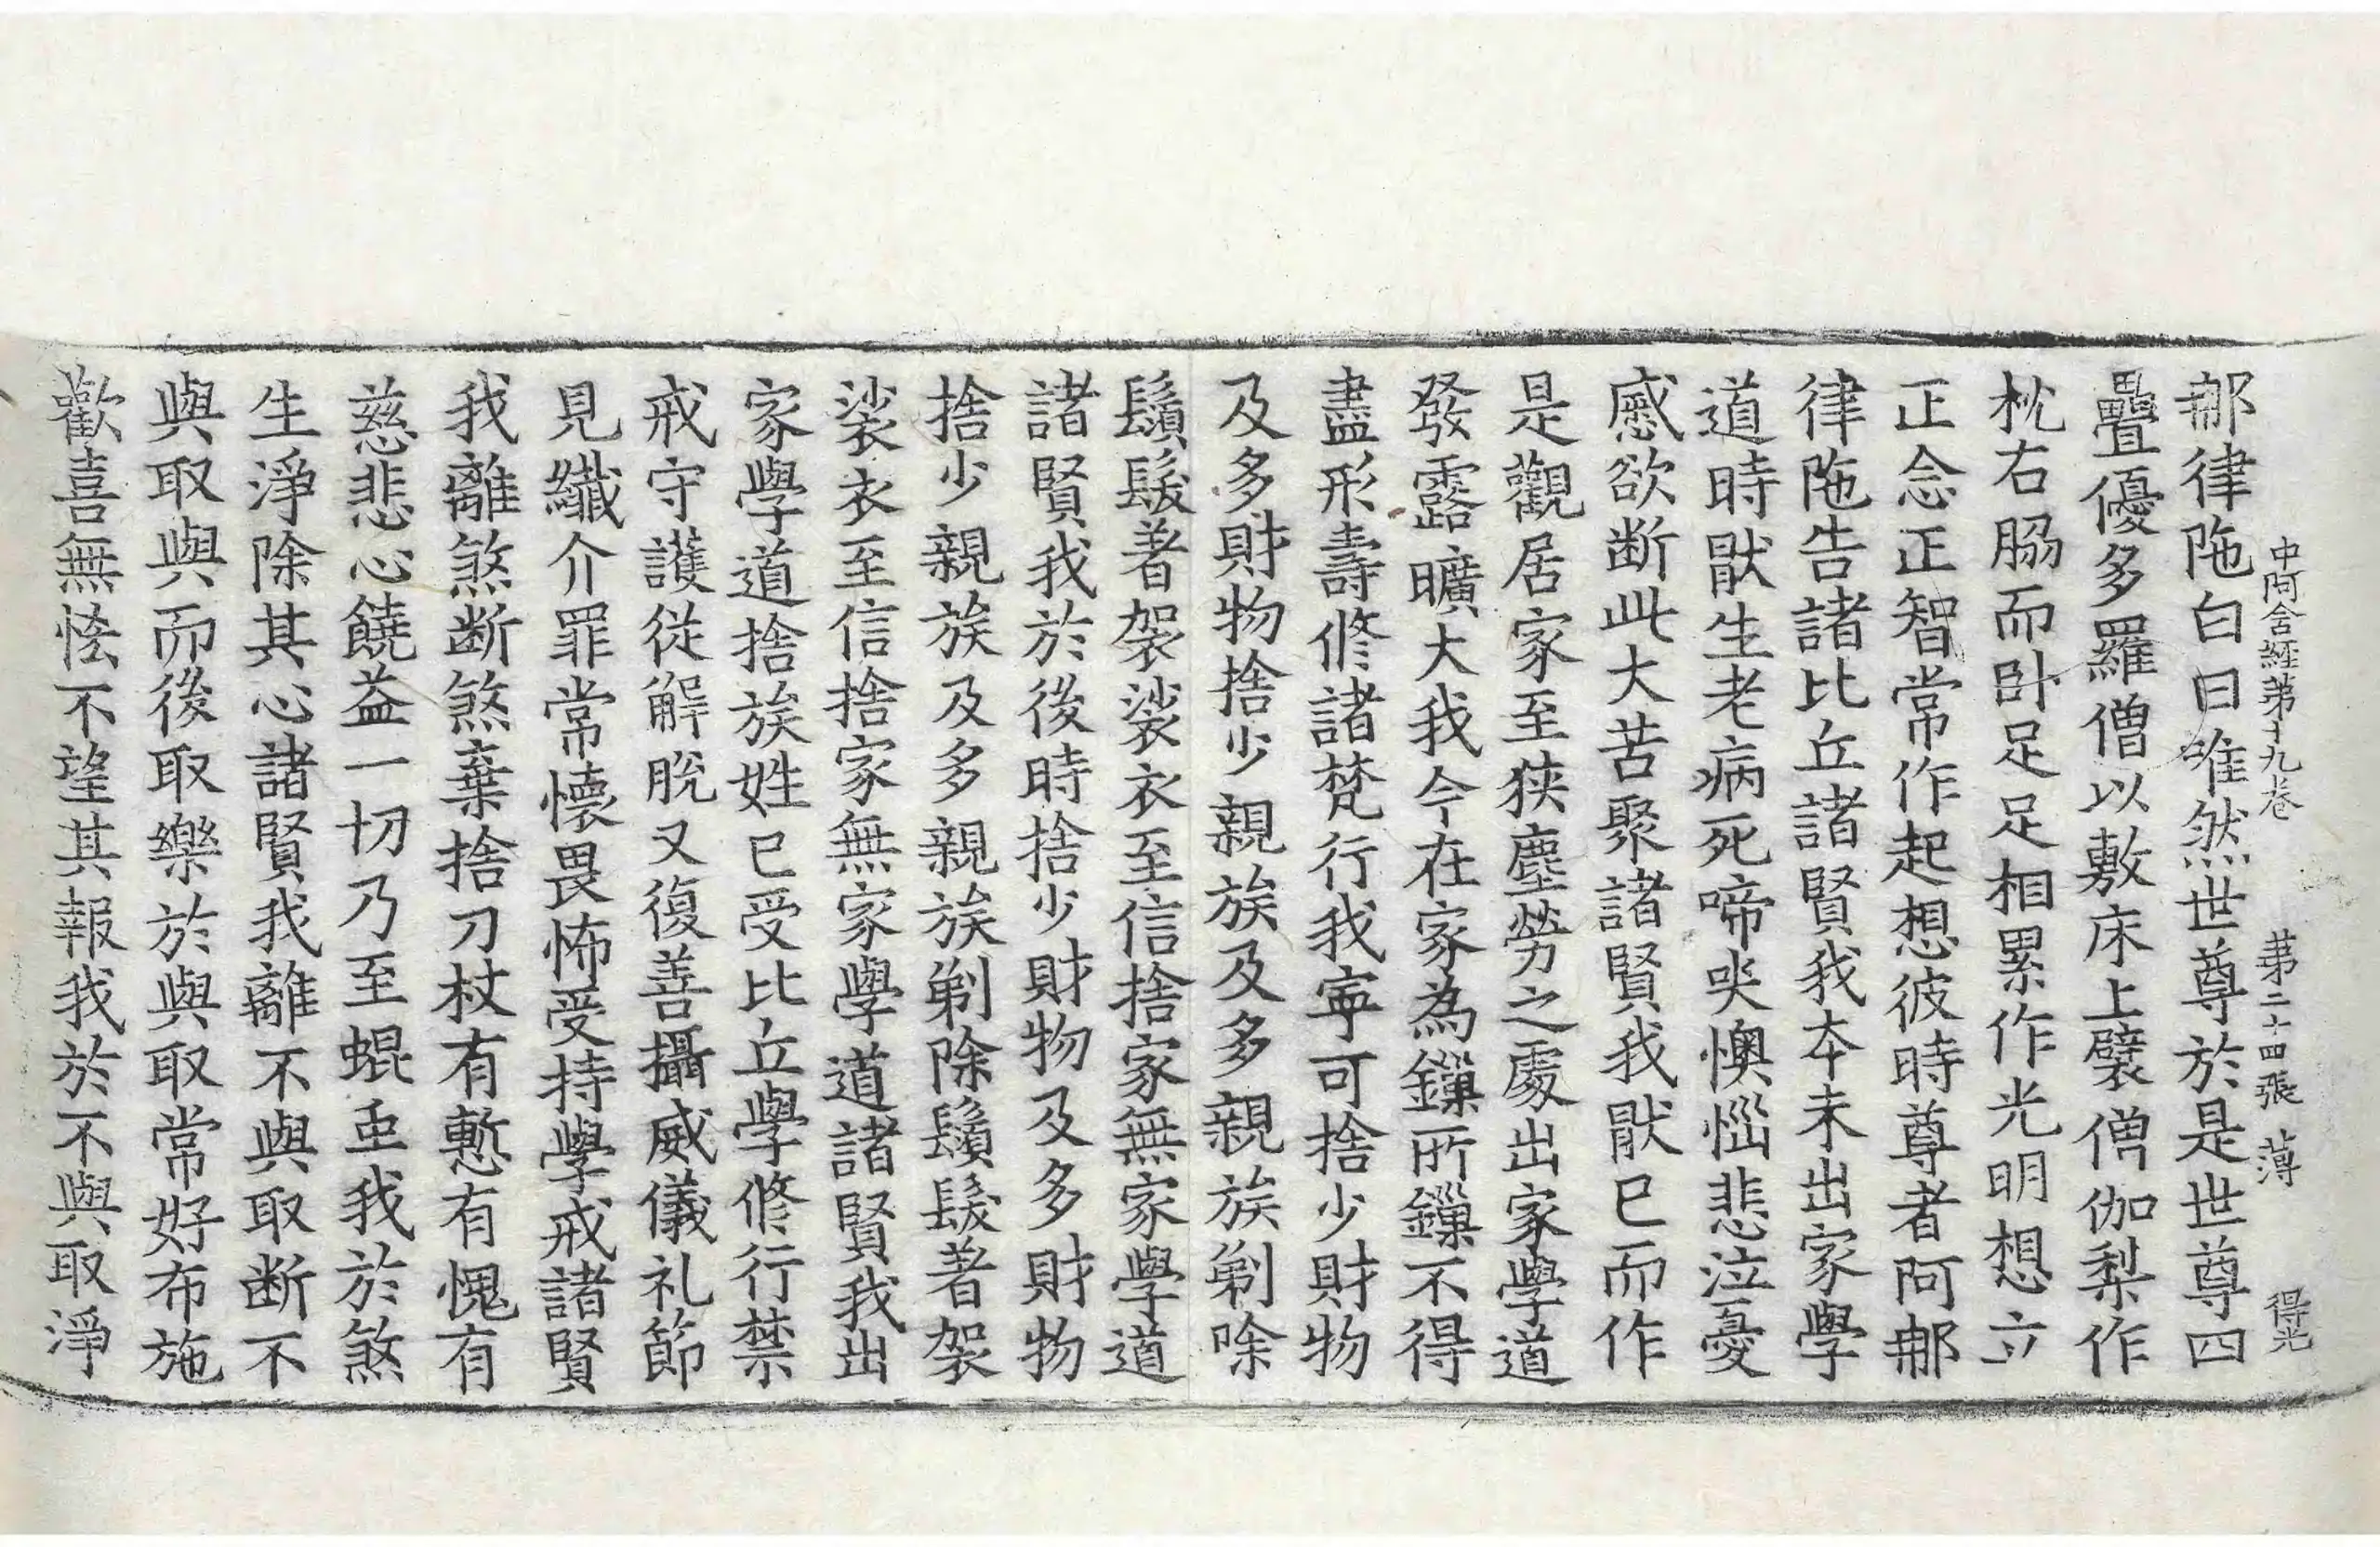 中阿含經第十九卷 第二十四張 薄 得光
那律陁白曰唯然世尊於是世尊四
疊優多羅僧以敷床上襞僧伽梨作
枕右脇而卧足足相累作光明想立
正念正智常作起想彼時尊者阿那
律陁告諸比丘諸賢我本未出家學
道時猒生老病死啼哭懊惱悲泣憂
慼欲断此大苦聚諸賢我猒已而作
是觀居家至狹塵勞之處出家學道
發露曠大我今在家為鏁所鏁不得
盡形壽修諸梵行我寧可捨少財物
及多財物捨少親族及多親族剃除
鬚髮著袈裟衣至信捨家無家學道
諸賢我於後時捨少財物及多財物
捨少親族及多親族剃除鬚髮著袈
裟衣至信捨家無家學道諸賢我出
家學道捨族姓已受比丘學修行禁
戒守護從解脫又復善攝威儀礼節
見纖介罪常懷畏怖受持學戒諸賢
我離煞断煞棄捨刀杖有慙有愧有
慈悲心饒益一切乃至蜫虫我於煞
生淨除其心諸賢我離不與取断不
與取與而後取樂於與取常好布施
歡喜無恡不望其報我於不與取淨